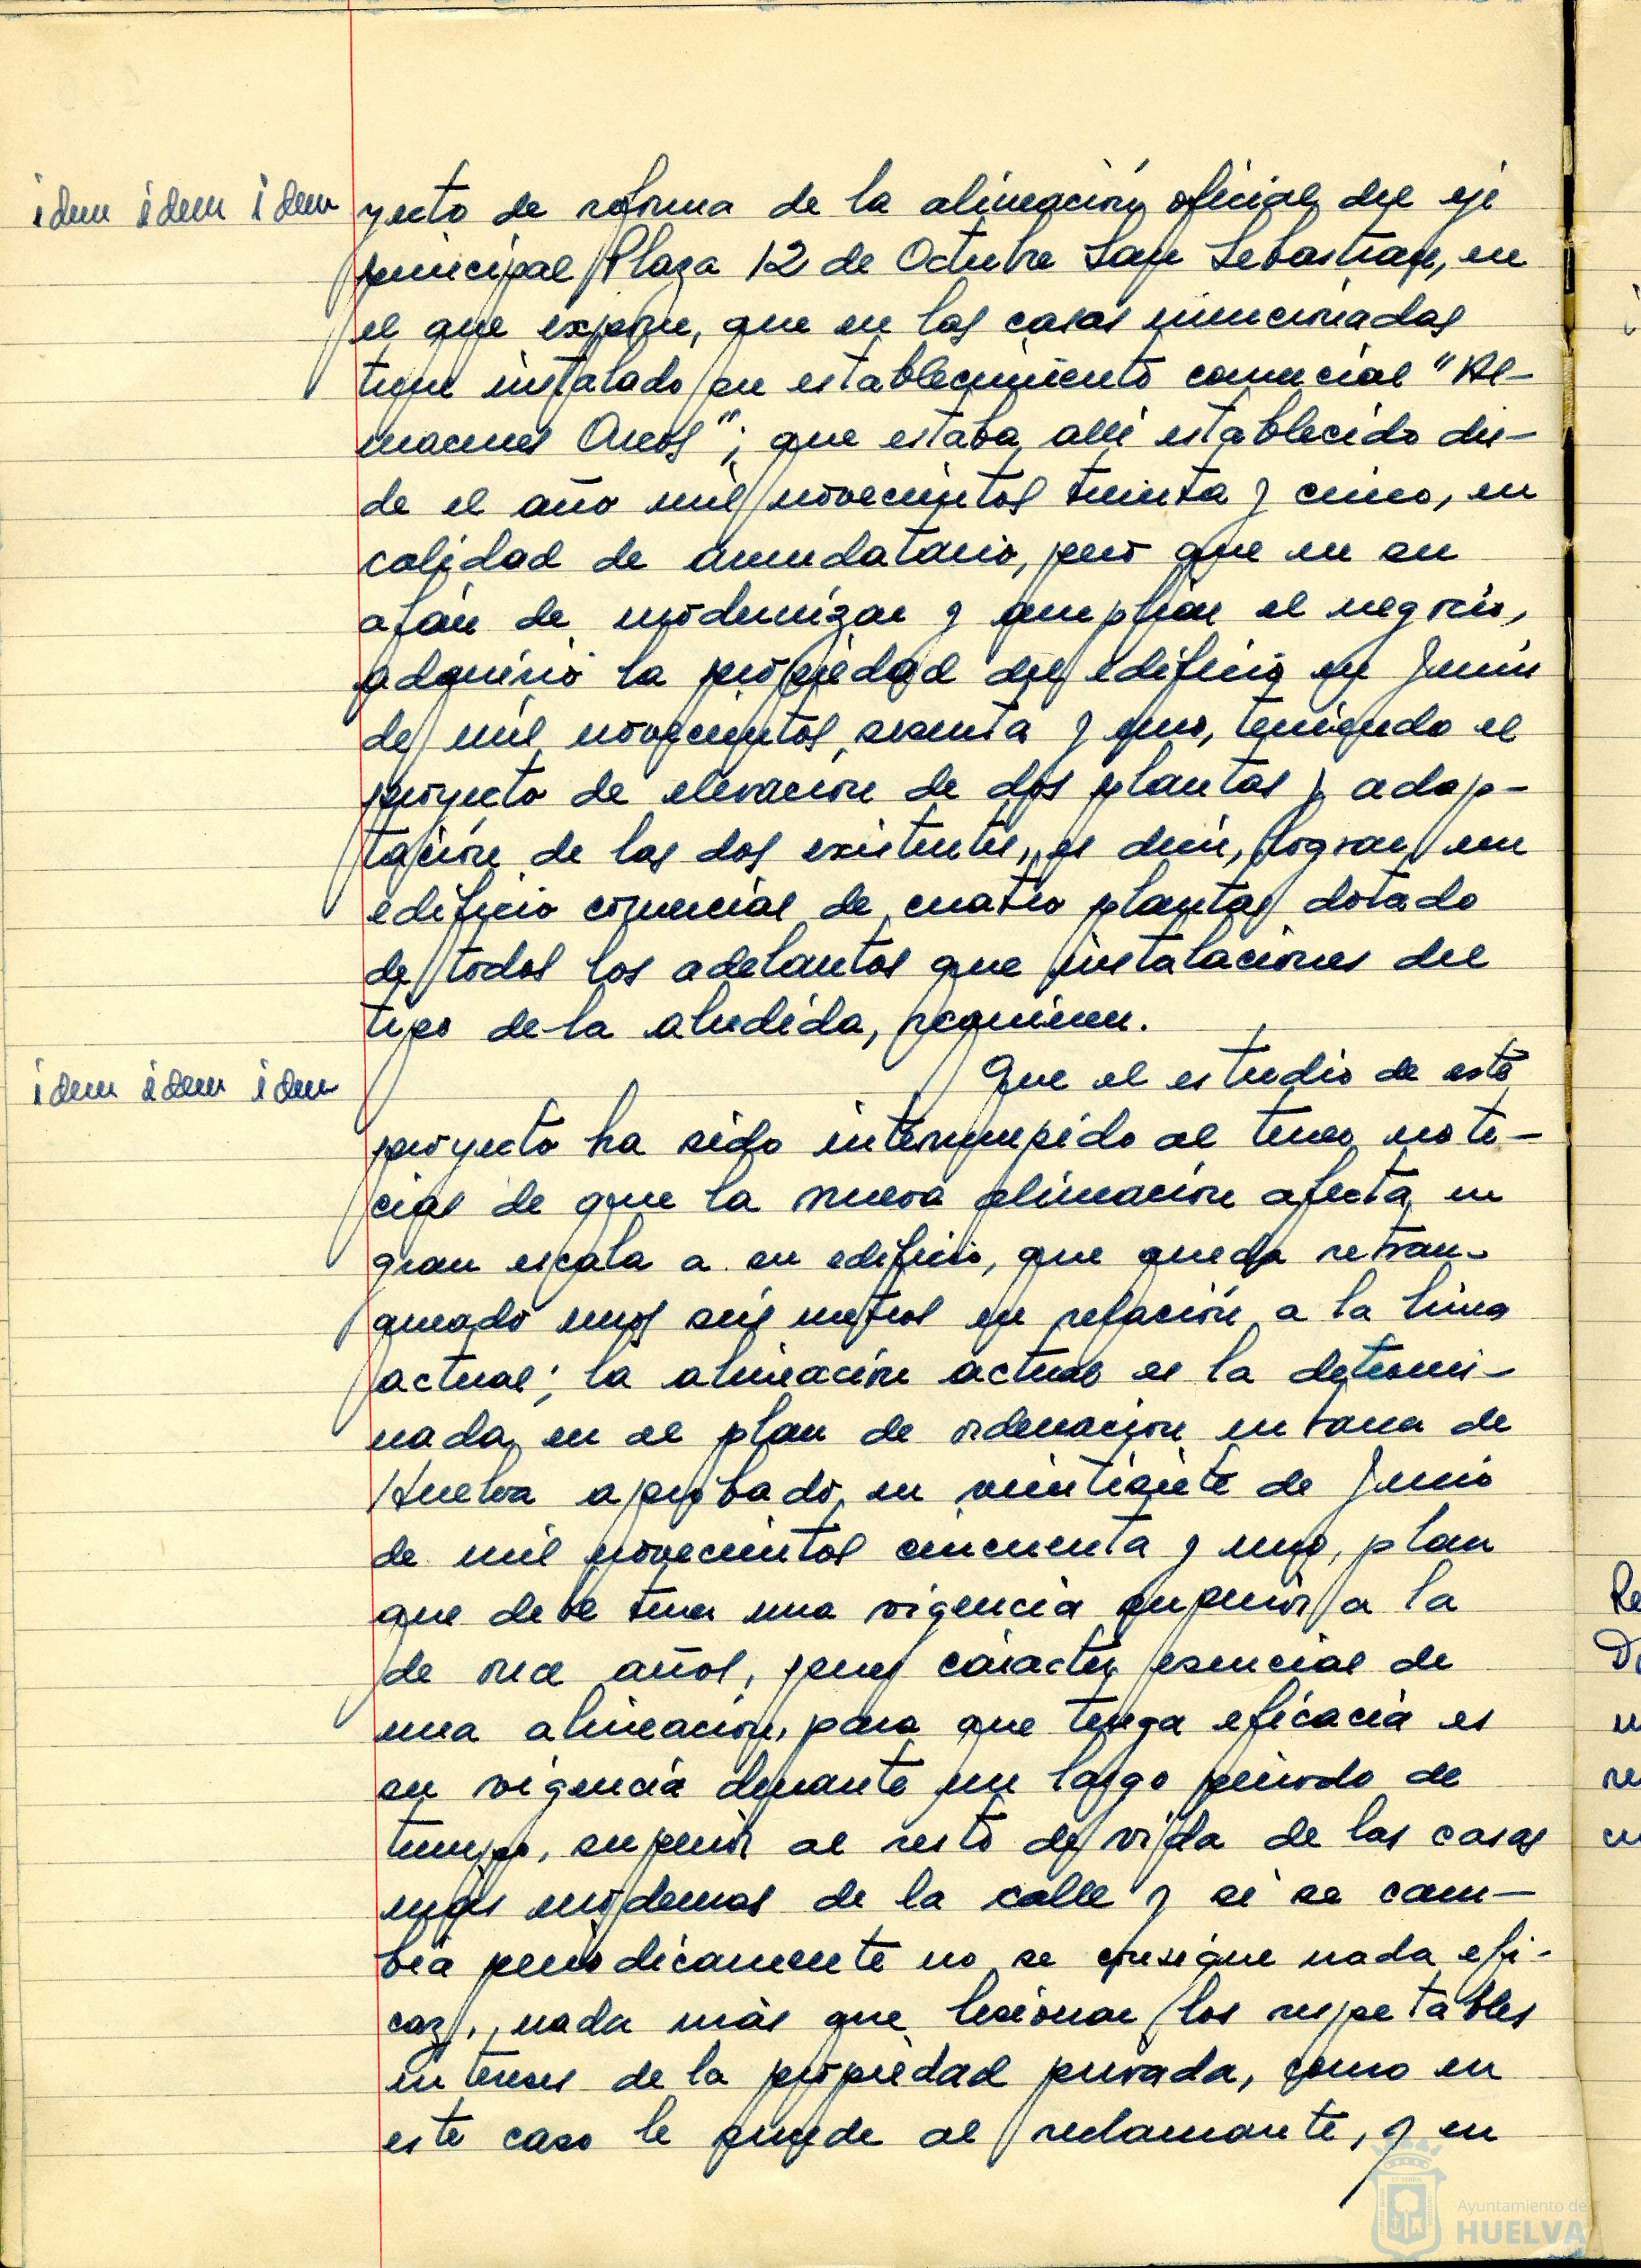 idem idem idem
yecto de reforma de la alineación oficial del eje
principal Plaza 12 de Octubre San Sebastian, en
el que expone, que en las casas mencionadas
tiene instalado su establecimiento comercial "Al-
macenes Arcos"; que estaba alli establecido des-
de el año mil novecientos treinta y cinco, en
calidad de arrendatario, pero que en su
afán de modernizar y ampliar el negocio,
adquirió la propiedad del edificio en Junio
de mil novecientos sesenta y uno, teniendo el
proyecto de elevación de dos plantas y adap-
tación de las dos existentes, es decir, lograr un
edificio comercial de cuatro plantas dotado
de todos los adelantos que instalaciones del
tipo de la aludida, requieren.
idem idem idem
Que el estudio de este
proyecto ha sido interrumpido al tener noti-
cias de que la nueva alineación afecta en
gran escala a su edificio, que queda retran-
queado unos seis metros en relación a la linea
actual; la alineación actual es la determi-
nada en el plan de ordenación urbana de
Huelva aprobado en veintisiete de Junio
de mil novecientos cincuenta y uno, plan
que debe tener una vigencia superior a la
de once años, pues carácter esencial de
una alineación, para que tenga eficacia es
su vigencia durante un largo periodo de
tiempo, superior al resto de vida de las casas
más modernas de la calle y si se cam-
bia periodicamente no se consigue nada efi-
caz, nada más que lesionar los respetables
intereses de la propiedad privada, como en
este caso le sucede al reclamante, y en
Re
D
re
cu
Ayuntamiento de
HUELVA